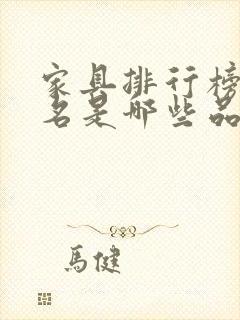 家具排行榜
名是哪些品
馬健